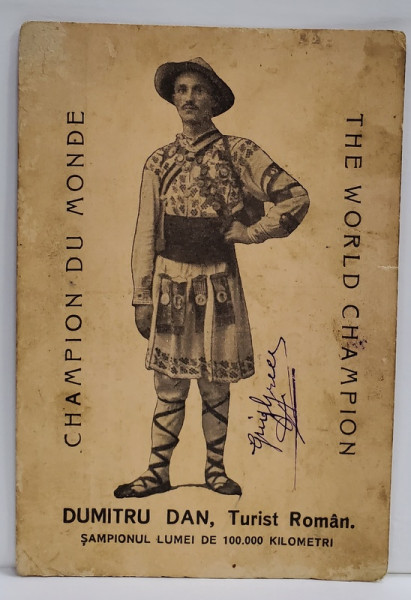 CHAMPION DU MONDE
THE WORLD CHAMPION
DUMITRU DAN, Turist Român.
ȘAMPIONUL LUMEI DE 100.000 KILOMETRI